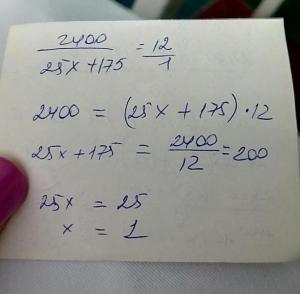 2400/(25x+175) = 12/1
2400 = (25x + 175) · 12
25x + 175 = 2400/12 = 200
25x = 25
x = 1